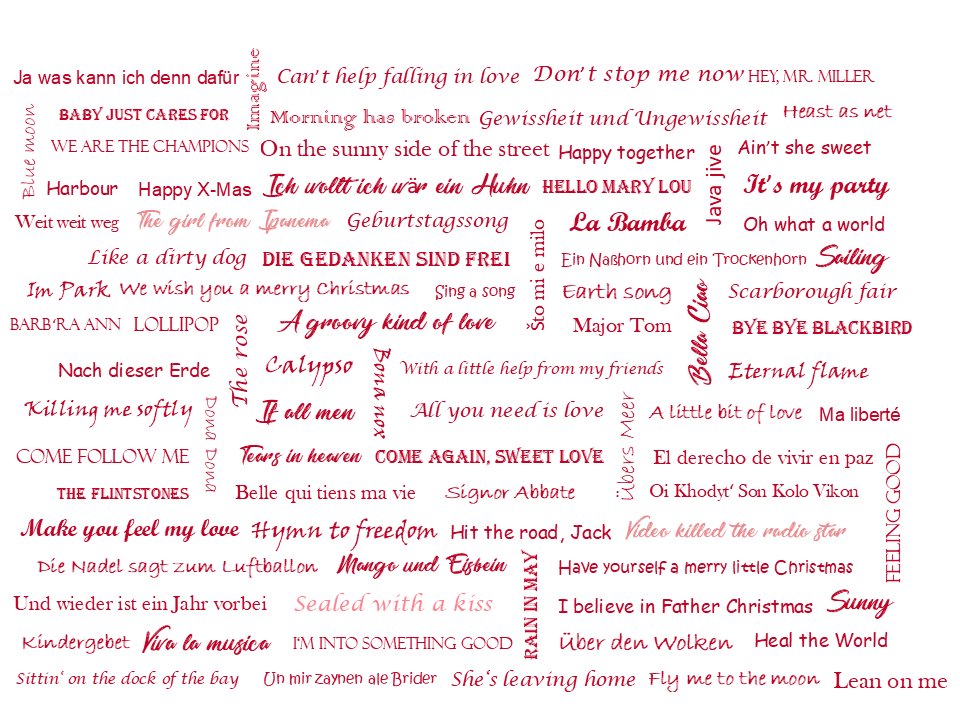 Ja was kann ich denn dafür
Imagine
Can't help falling in love
Don't stop me now
HEY, MR. MILLER
Blue moon
BABY JUST CARES FOR
Morning has broken
Gewissheit und Ungewissheit
Heast as net
WE ARE THE CHAMPIONS
On the sunny side of the street
Happy together
Ain't she sweet
Harbour
Happy X-Mas
Ich wollt ich wär ein Huhn
HELLO MARY LOU
Java jive
It's my party
Weit weit weg
The girl from Ipanema
Geburtstagssong
La Bamba
Oh what a world
Like a dirty dog
DIE GEDANKEN SIND FREI
Što mi e milo
Ein Naßhorn und ein Trockenhorn
Sailing
Im Park.
We wish you a merry Christmas
Sing a song
Earth song
Bella Ciao
Scarborough fair
BARB'RA ANN
LOLLIPOP
The rose
A groovy kind of love
Major Tom
BYE BYE BLACKBIRD
Nach dieser Erde
Calypso
Bona nox
With a little help from my friends
Eternal flame
Killing me softly
Dona Dona
If all men
All you need is love
Übers Meer
A little bit of love
Ma liberté
COME FOLLOW ME
Tears in heaven
COME AGAIN, SWEET LOVE
El derecho de vivir en paz
FEELING GOOD
THE FLINTSTONES
Belle qui tiens ma vie
Signor Abbate
Oi Khodyt' Son Kolo Vikon
Make you feel my love
Hymn to freedom
Hit the road, Jack
Video killed the radio star
Die Nadel sagt zum Luftballon
Mango und Eisbein
RAIN IN MAY
Have yourself a merry little Christmas
Und wieder ist ein Jahr vorbei
Sealed with a kiss
I believe in Father Christmas
Sunny
Kindergebet
Viva la musica
I'M INTO SOMETHING GOOD
Über den Wolken
Heal the World
Sittin' on the dock of the bay
Un mir zaynen ale Brider
She's leaving home
Fly me to the moon
Lean on me